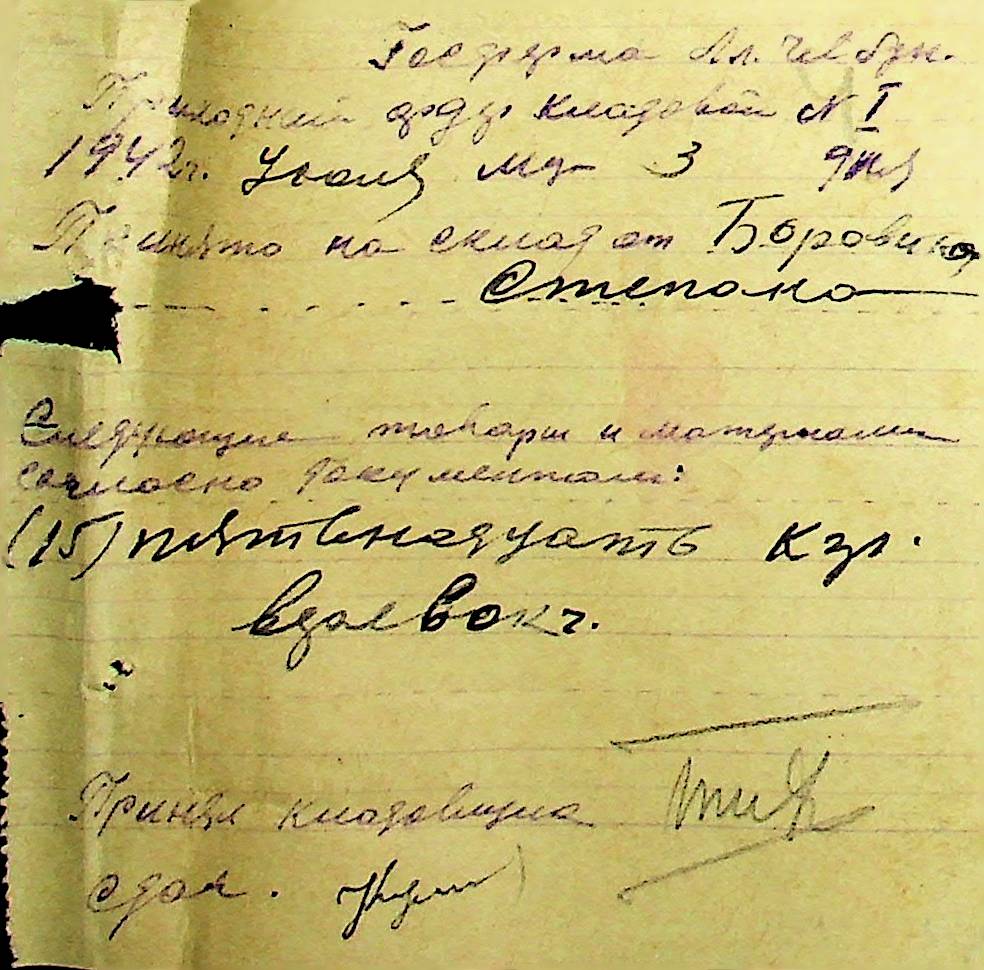 Госферма
Приходный ордер кладовой № I
1942г. Июля м-ц 3 дня
Принято на склад от Боровика
Степана
Следующие товары и материалы
согласно документам:
(15) пятьнадцать кгл.
Принял кладовщик
сдал.